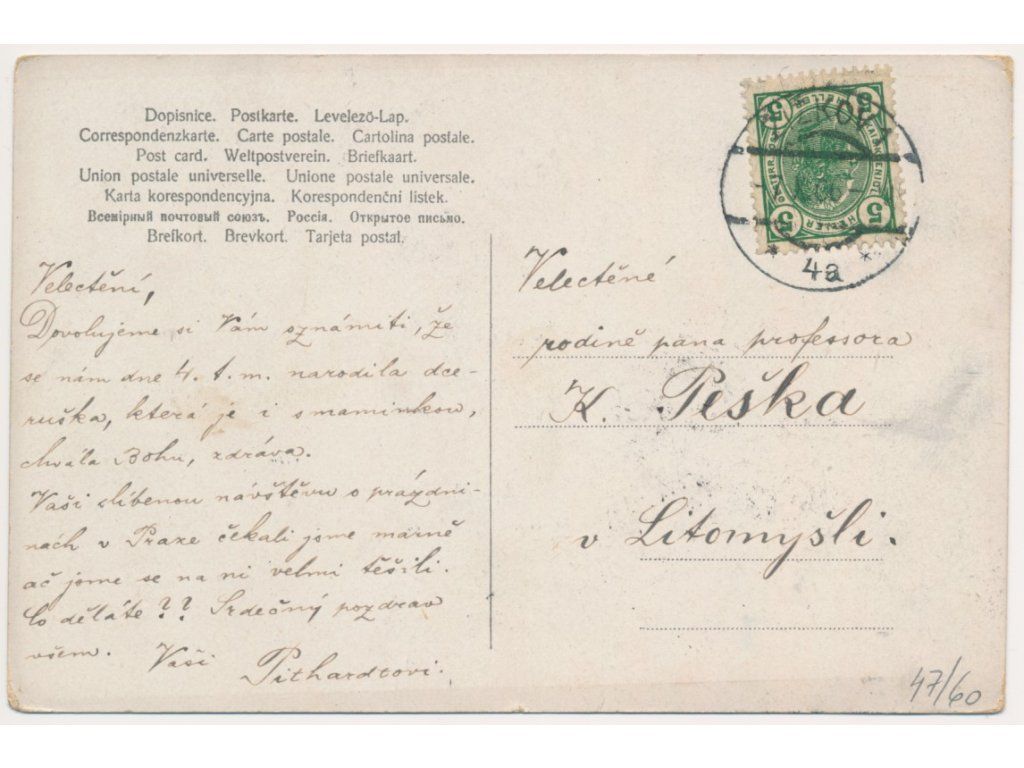 Dopisnice. Postkarte. Levelező-Lap.
Correspondenzkarte. Carte postale. Cartolina postale.
Post card. Weltpostverein. Briefkaart.
Union postale universelle. Unione postale universale.
Karta korespondencyjna. Korespondenční lístek.
Всемірный почтовый союзъ. Россія. Открытое письмо.
Brefkort. Brevkort. Tarjeta postal.
Velectění,
Dovolujeme si Vám oznámiti, že
se nám dne 4. t. m. narodila dce-
ruška, která je i s maminkou,
chvála Bohu, zdráva.
Vaši slíbenou návštěvu o prázdni-
nách v Praze čekali jsme marně
ač jsme se na ni velmi těšili.
Co děláte?? Srdečný pozdrav
všem. Vaši Pithardtovi.
5 5
5 5
HELLER
4a
Velectěné
rodině pana professora
K. Peška
v Litomyšli.
47/60